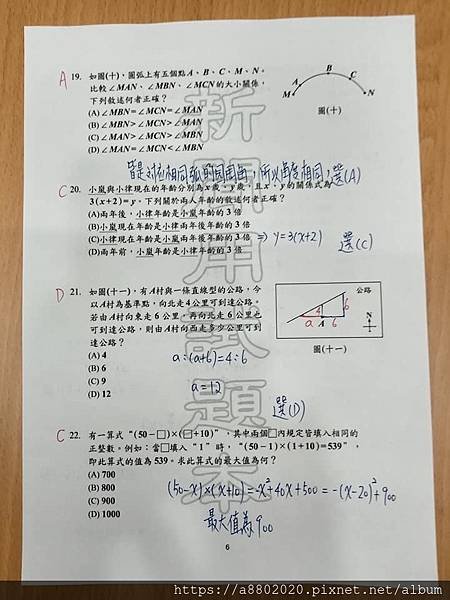 A 19. 如圖(十)，圓弧上有五個點A、B、C、M、N。
比較∠MAN、∠MBN、∠MCN的大小關係，
下列敘述何者正確？
(A) ∠MBN＝∠MCN＝∠MAN
(B) ∠MBN＞∠MCN＞∠MAN
(C) ∠MCN＞∠MBN＞∠MAN
(D) ∠MAN＞∠MCN＞∠MBN
A B C M N
圖(十)
皆是對於相同弧的圓周角，所以角度相同，選(A)
C 20. 小嵐與小律現在的年齡分別為x歲、y歲，且x、y的關係式為
3(x+2)=y，下列關於兩人年齡的敘述何者正確？
(A)兩年後，小律年齡是小嵐年齡的3倍
(B)小嵐現在年齡是小律兩年後年齡的3倍
(C)小律現在年齡是小嵐兩年後年齡的3倍 ⇒ y=3(x+2) 選(C)
(D)兩年前，小嵐年齡是小律年齡的3倍
D 21. 如圖(十一)，有A村與一條直線型的公路，今
以A村為基準點，向北走4公里可到達公路。
若由A村向東走6公里，再向北走6公里也
可到達公路，則由A村向西走多少公里可到
達公路？
(A) 4
(B) 6
(C) 9
(D) 12
公路
4 6
a A 6
N
圖(十一)
a:(a+6)=4:6
a=12
選(D)
C 22. 有一算式“(50－□)×(□＋10)”，其中兩個□內規定皆填入相同的
正整數。例如：當□填入“1”時，“(50－1)×(1＋10)＝539”，
即此算式的值為539。求此算式的最大值為何？
(A) 700
(B) 800
(C) 900
(D) 1000
(50-x)×(x+10)=-x²+40x+500=-(x-20)²+900
最大值為900
6
新聞用試題本
https://a8802020.pixnet.net/album